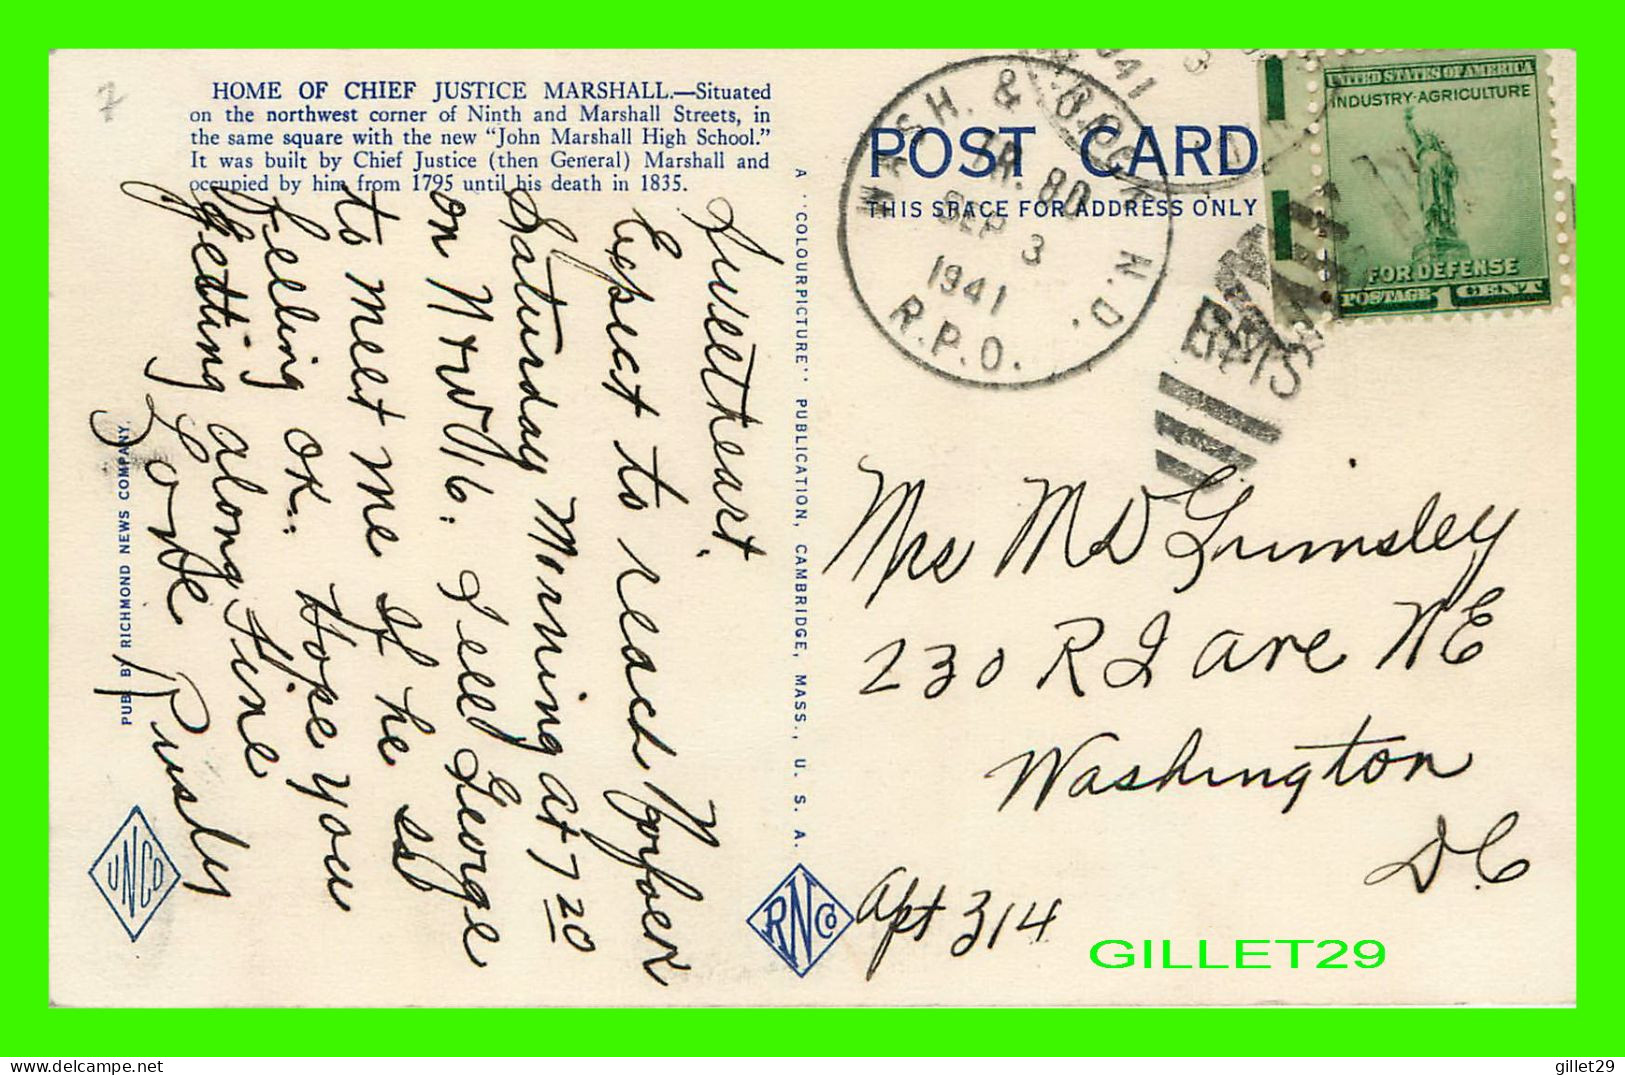 7
HOME OF CHIEF JUSTICE MARSHALL.—Situated
on the northwest corner of Ninth and Marshall Streets, in
the same square with the new "John Marshall High School."
It was built by Chief Justice (then General) Marshall and
occupied by him from 1795 until his death in 1835.
Sweetheart.
Expect to reach
Saturday Morning at 7 20
on N+W 16. Tell George
to meet me if he is
Feeling OK. Hope you
getting along Fine
Love
Rusty
PUB. BY RICHMOND NEWS COMPANY.
UNCO
A "COLOURPICTURE" PUBLICATION, CAMBRIDGE, MASS., U. S. A.
RNCo
POST CARD
THIS SPACE FOR ADDRESS ONLY
WASH. & N.D.
TR. 80
SEP 3
1941
R.P.O.
1941
3
RMS
UNITED STATES OF AMERICA
INDUSTRY-AGRICULTURE
FOR DEFENSE
POSTAGE 1 CENT
Mrs M D Grimsley
230 R I ave NE
Washington
D.C
Apt 314
GILLET29
gillet29